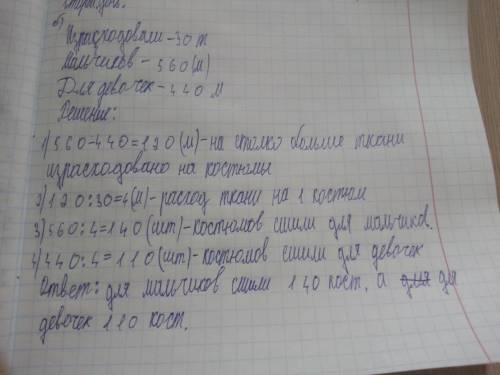 второй день.
б)
Израсходовали - 30 т
Мальчиков - 560 (м)
Для девочек - 440 м
Решение:
1) 560-440=120 (м) - на столко больше ткани
израсходовано на костюмы
2) 120:30=4(м) - расход ткани на 1 костюм
3) 560:4=140 (шт) - костюмов сшили для мальчиков.
4) 440:4=110 (шт) - костюмов сшили для девочек
Ответ: для мальчиков сшили 140 кост. а для
девочек 110 кост.